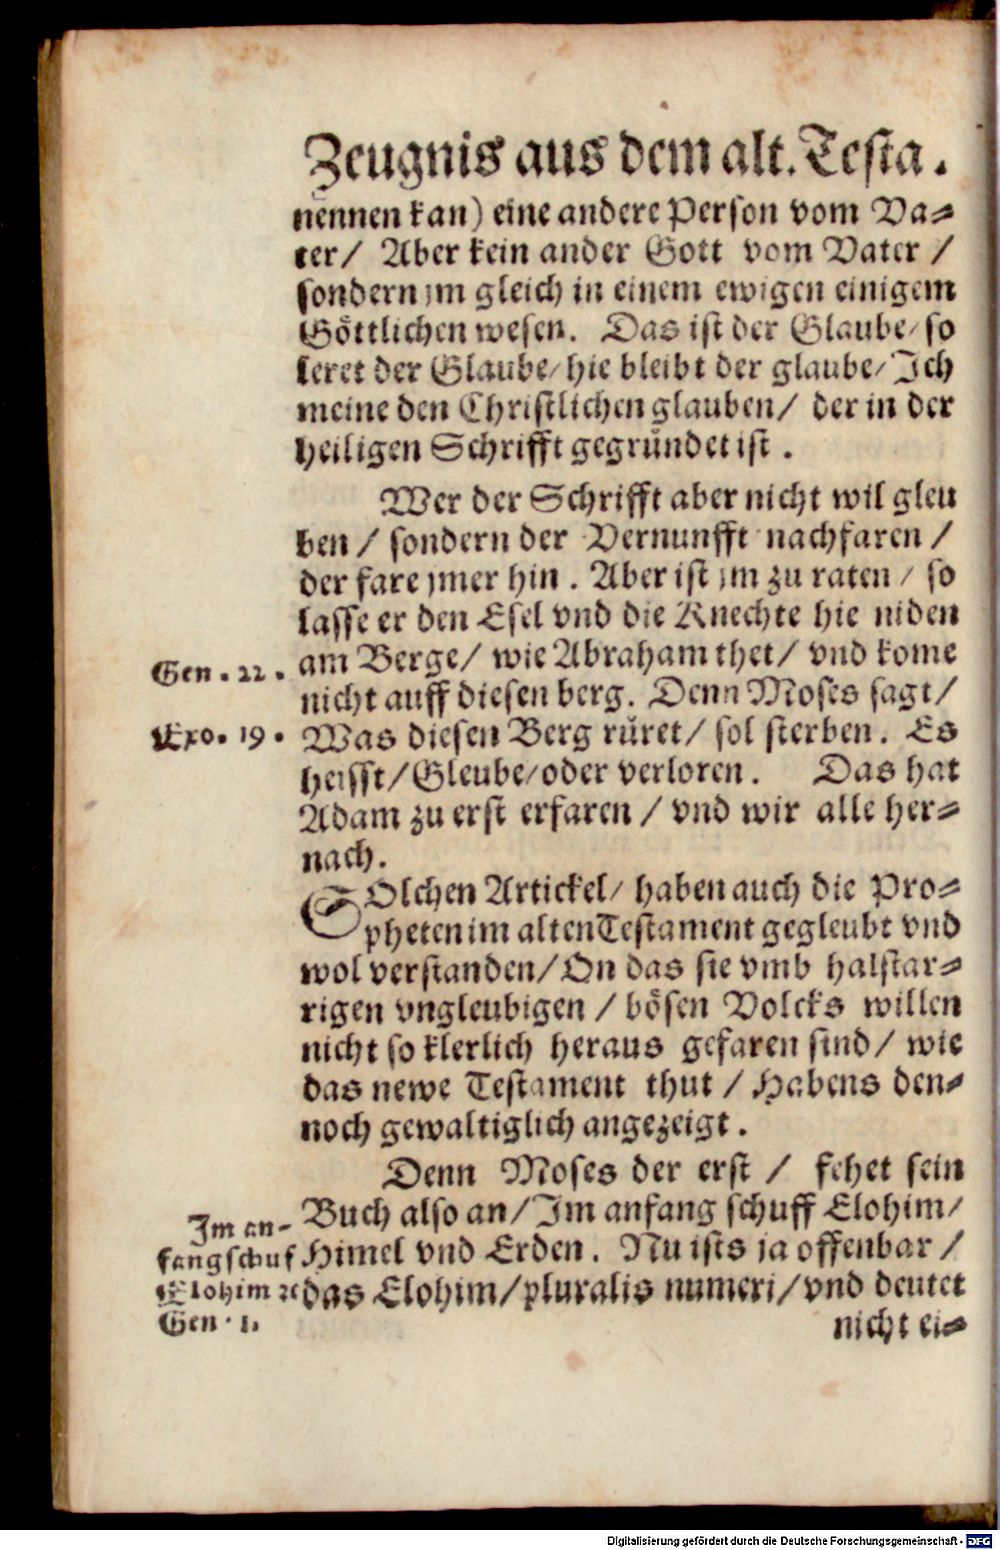 Zeugnis aus dem alt. Testa.
nennen kan) eine andere Person vom Va⸗
ter/ Aber kein ander Gott vom Vater /
sondern jm gleich in einem ewigen einigem
Göttlichen wesen. Das ist der Glaube/ so
leret der Glaube/ hie bleibt der glaube/ Ich
meine den Christlichen glauben/ der in der
heiligen Schrifft gegründet ist.
Wer der Schrifft aber nicht wil gleu
ben / sondern der Vernunfft nachfaren /
der fare jmer hin. Aber ist jm zu raten / so
lasse er den Esel vnd die Knechte hie niden
Gen. 22. am Berge/ wie Abraham thet/ vnd kome
nicht auff diesen berg. Denn Moses sagt/
Exo. 19. Was diesen Berg rüret/ sol sterben. Es
heisst/ Gleube/ oder verloren. Das hat
Adam zu erst erfaren / vnd wir alle her⸗
nach.
SOlchen Artickel/ haben auch die Pro⸗
pheten im alten Testament gegleubt vnd
wol verstanden/ On das sie vmb halstar⸗
rigen vngleubigen / bösen Volcks willen
nicht so klerlich heraus gefaren sind/ wie
das newe Testament thut / Habens den⸗
noch gewaltiglich angezeigt.
Denn Moses der erst / fehet sein
Buch also an/ Im anfang schuff Elohim/
Im an-
fang schuf Himel vnd Erden. Nu ists ja offenbar /
Elohim ꝛc das Elohim/ pluralis numeri/ vnd deutet
Gen. 1. nicht ei⸗
Digitalisierung gefördert durch die Deutsche Forschungsgemeinschaft - DFG